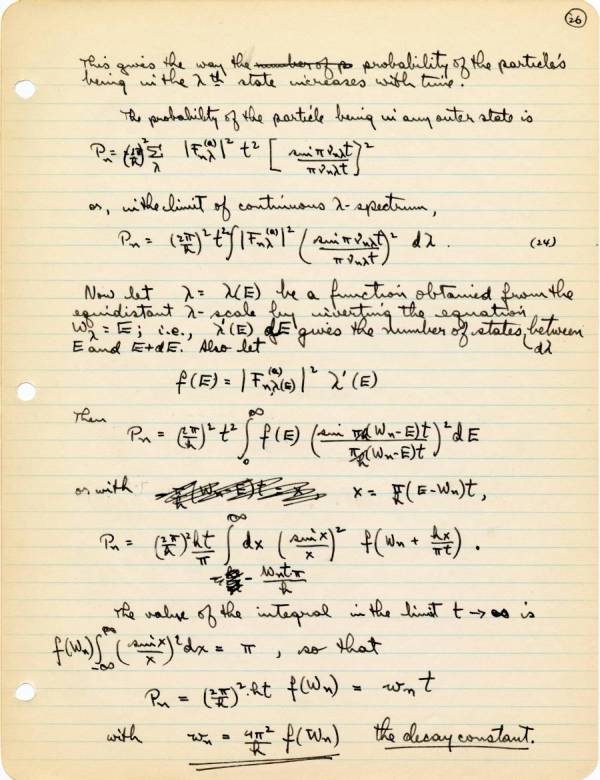 26
This gives the way the number of p probability of the particle's
being in the λ th state increases with time.
The probability of the particle being in any outer state is
Pₙ = (2π/h)² Σ_λ |F_{nλ}^{(a)}|² t² [ sin π ν_{nλ} t / π ν_{nλ} t ]²
or, in the limit of continuous λ-spectrum,
Pₙ = (2π/h)² t² ∫ |F_{nλ}^{(a)}|² ( sin π ν_{nλ} t / π ν_{nλ} t )² dλ . (24)
Now let λ = λ(E) be a function obtained from the
equidistant λ-scale by inverting the equation
W_λ = E; i.e., λ'(E) dE gives the number of states, between
E and E+dE. Also let dλ
f(E) = |F_{n,λ(E)}^{(a)}|² λ'(E)
Then Pₙ = (2π/h)² t² ∫₀^∞ f(E) ( sin π/h (Wₙ-E)t / π/h (Wₙ-E)t )² dE
or with x = π/h (E-Wₙ)t,
Pₙ = (2π/h)² ht/π ∫_{-Wₙtπ/h}^∞ dx ( sin x / x )² f(Wₙ + hx/πt) .
The value of the integral in the limit t → ∞ is
f(Wₙ) ∫_{-∞}^∞ ( sin x / x )² dx = π , so that
Pₙ = (2π/h)² · ht f(Wₙ) = wₙ t
with wₙ = 4π²/h f(Wₙ) the decay constant.